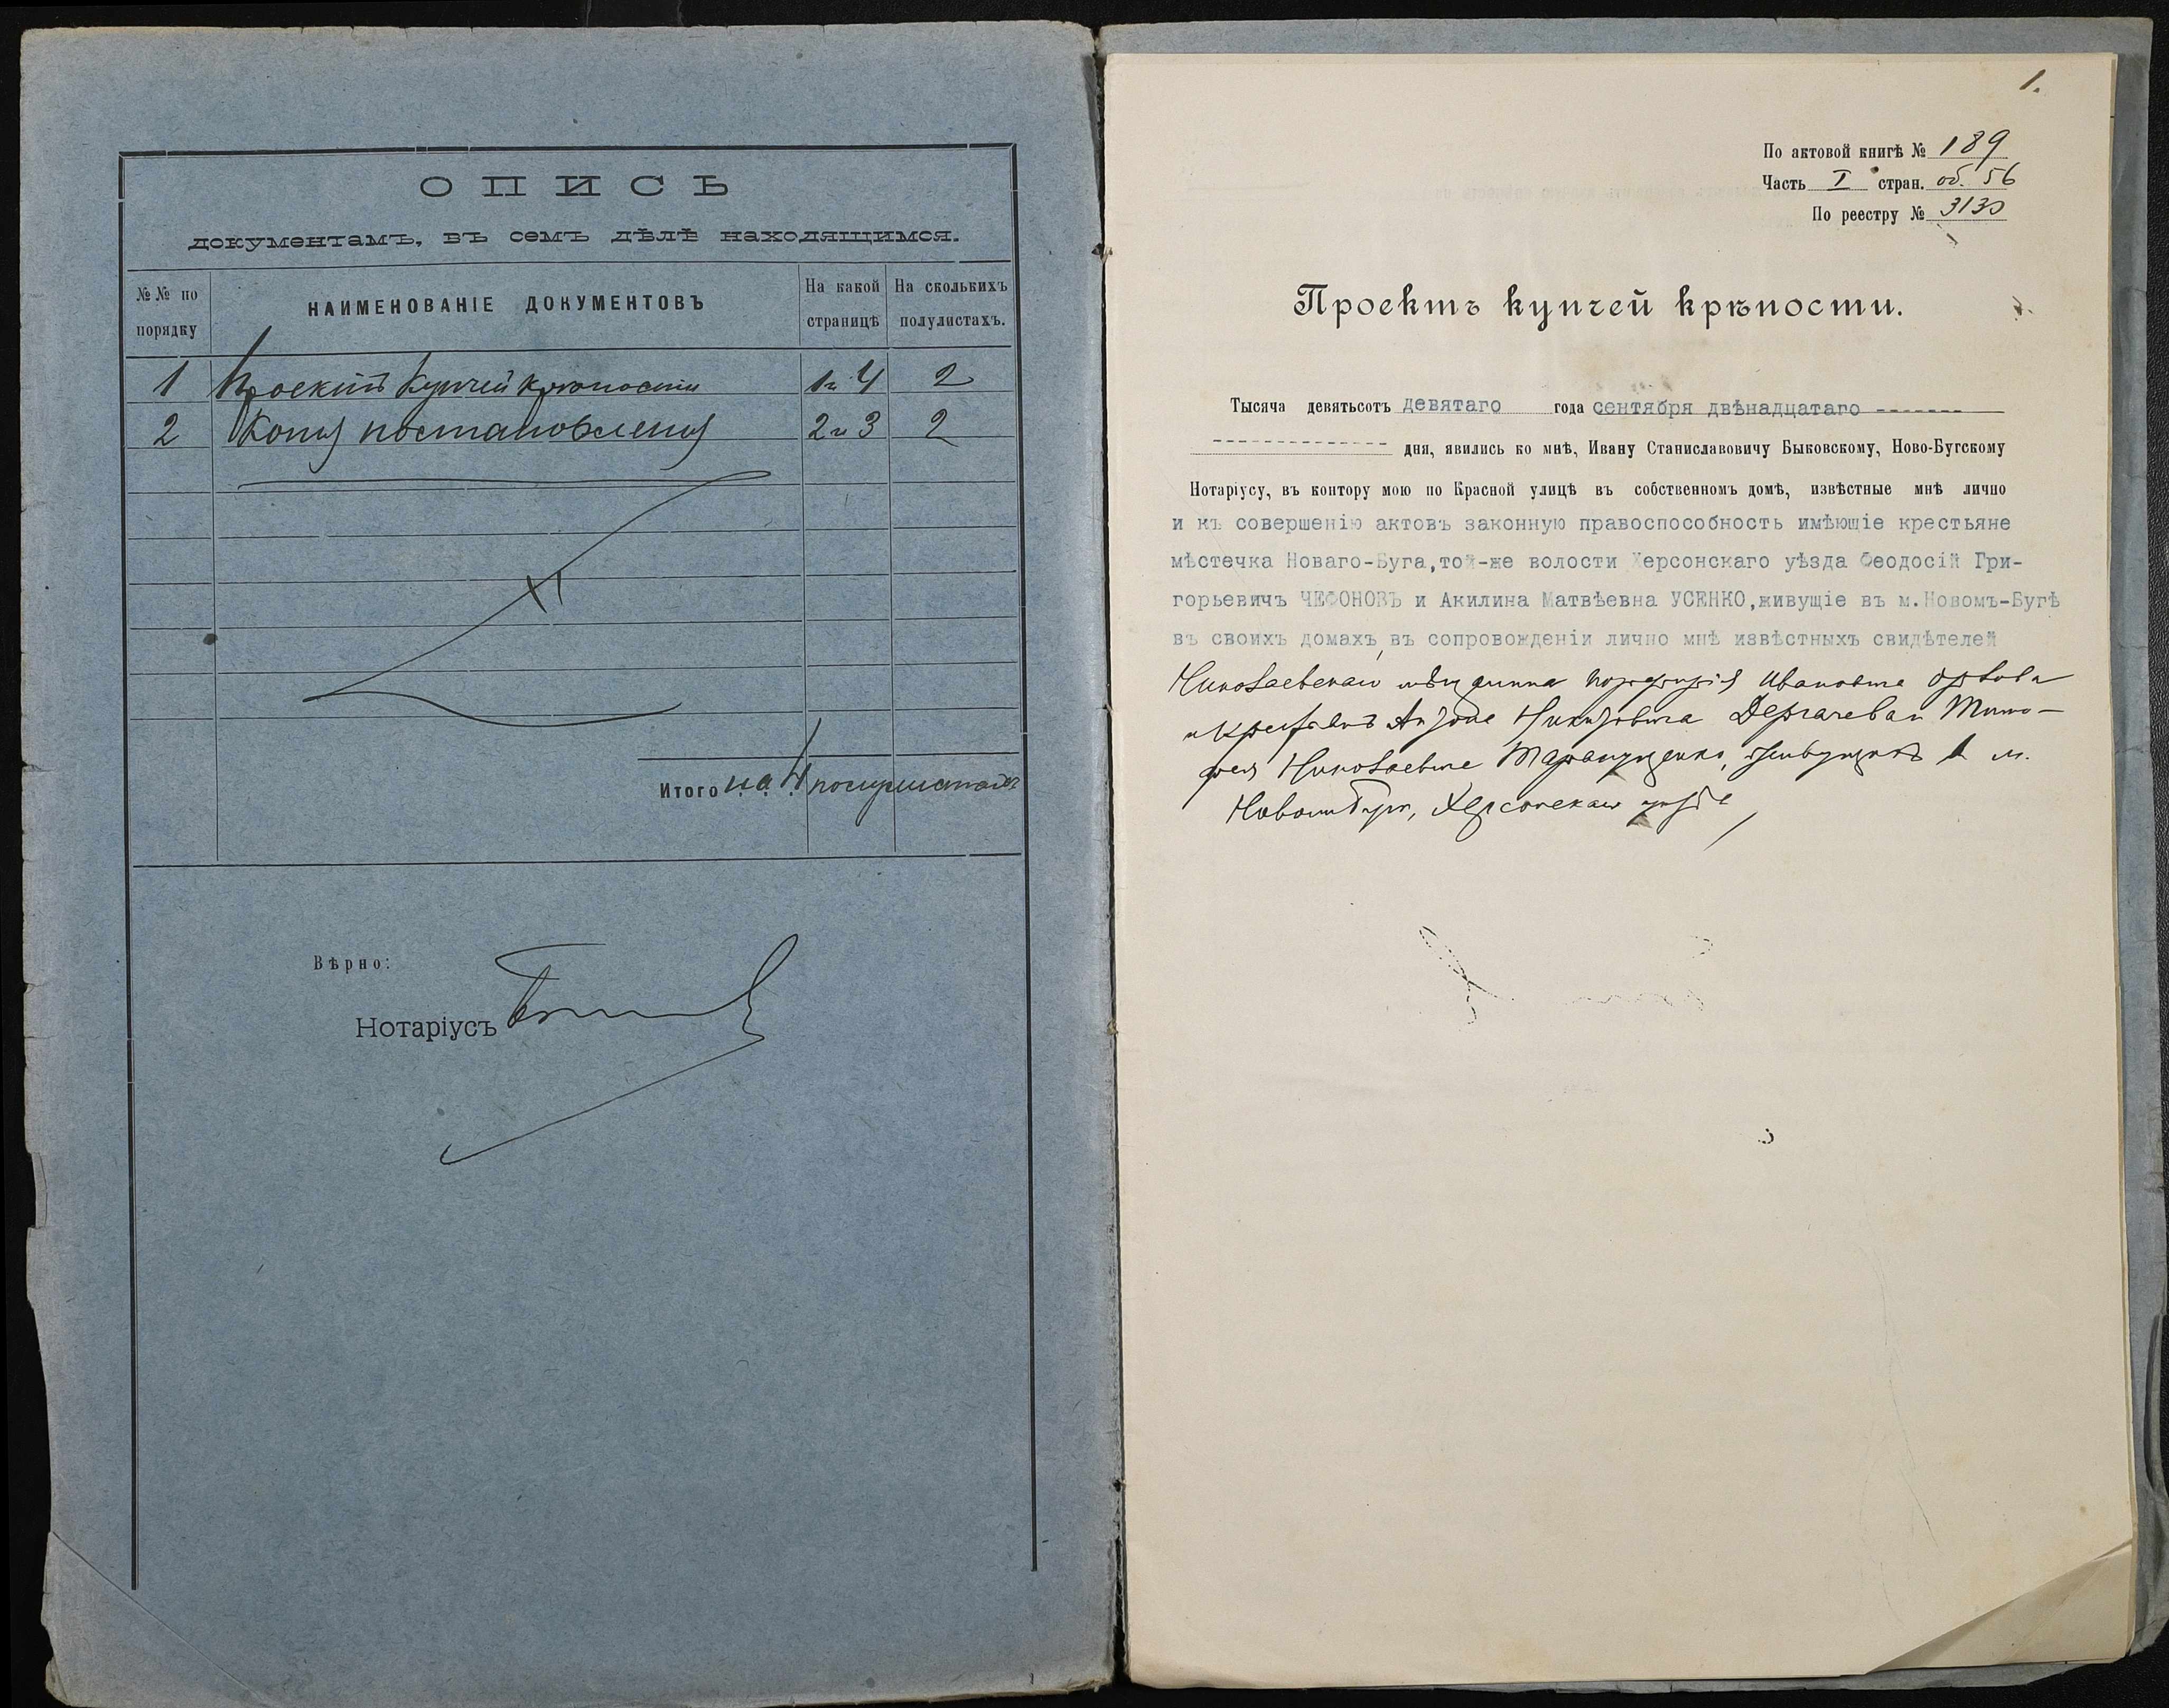 ОПИСЬ
документамъ, въ семъ дѣлѣ находящимся.
№№ по порядку
НАИМЕНОВАНІЕ ДОКУМЕНТОВЪ
На какой страницѣ
На сколькихъ полулистахъ.
1 Проектъ купчей крѣпости 1 и 4 2
2 Копія постановленія 2 и 3 2
Итого на 4 полулистахъ
Вѣрно:
Нотаріусъ
1.
По актовой книгѣ № 189
Часть I стран. об. 56
По реестру № 3130
Проектъ купчей крѣпости.
Тысяча девятьсотъ девятаго года сентября двѣнадцатаго -------
-------------- дня, явились ко мнѣ, Ивану Станиславовичу Быковскому, Ново-Бугскому
Нотаріусу, въ контору мою по Красной улицѣ въ собственномъ домѣ, извѣстные мнѣ лично
и къ совершенію актовъ законную правоспособность имѣющіе крестьяне
мѣстечка Новаго-Буга, той-же волости Херсонскаго уѣзда Феодосій Гри-
горьевичъ ЧЕФОНОВЪ и Акилина Матвѣевна УСЕНКО, живущіе въ м. Новомъ-Бугѣ
въ своихъ домахъ, въ сопровожденіи лично мнѣ извѣстныхъ свидѣтелей
Николаевскаго мѣщанина Порфирія Ивановича Орлова
и крестьянъ Никитовича Дергачева и Тимо-
фея Николаевича живущихъ въ м.
Новомъ Бугѣ, Херсонскаго уѣзда